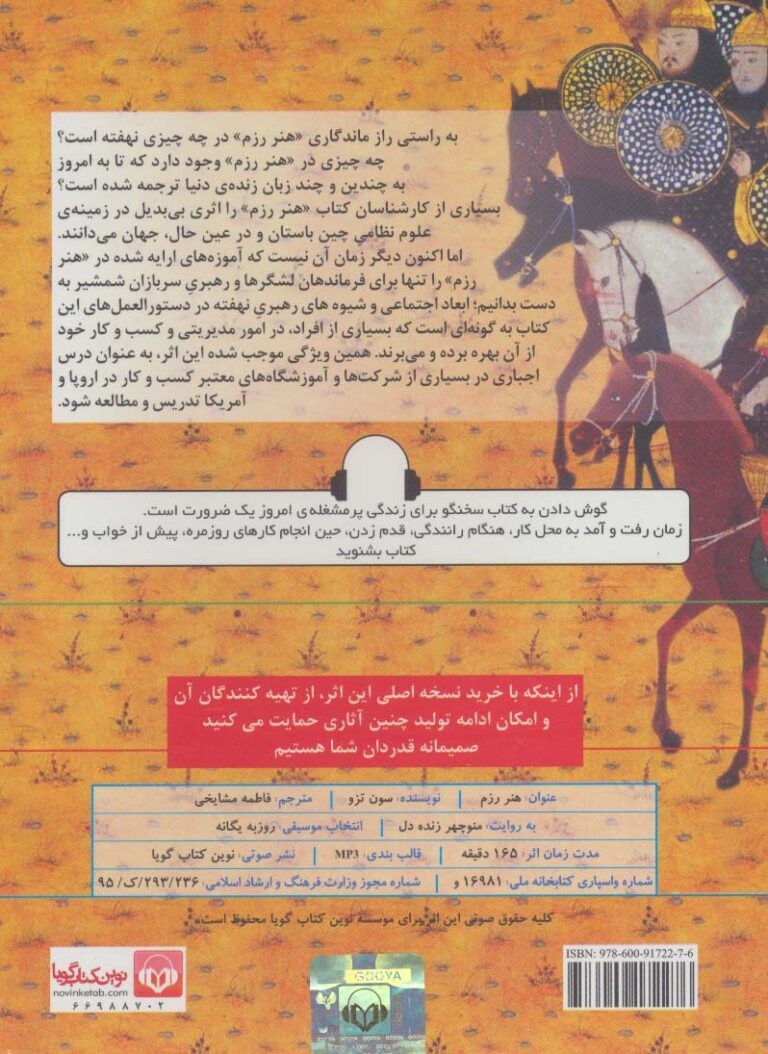 به راستی راز ماندگاری «هنر رزم» در چه چیزی نهفته است؟
چه چیزی در «هنر رزم» وجود دارد که تا به امروز
به چندین و چند زبان زنده‌ی دنیا ترجمه شده است؟
بسیاری از کارشناسان کتاب «هنر رزم» را اثری بی‌بدیل در زمینه‌ی
علوم نظامی چین باستان و در عین حال، جهان می‌دانند.
اما اکنون دیگر زمان آن نیست که آموزه‌های ارایه شده در «هنر
رزم» را تنها برای فرماندهان لشگرها و رهبریِ سربازان شمشیر به
دست بدانیم؛ ابعاد اجتماعی و شیوه های رهبریِ نهفته در دستورالعمل‌های این
کتاب به گونه‌ای است که بسیاری از افراد، در امور مدیریتی و کسب و کار خود
از آن بهره برده و می‌برند. همین ویژگی موجب شده این اثر، به عنوان درس
اجباری در بسیاری از شرکت‌ها و آموزشگاه‌های معتبر کسب و کار در اروپا و
آمریکا تدریس و مطالعه شود.
گوش دادن به کتاب سخنگو برای زندگی پرمشغله‌ی امروز یک ضرورت است.
زمان رفت و آمد به محل کار، هنگام رانندگی، قدم زدن، حین انجام کارهای روزمره، پیش از خواب و...
کتاب بشنوید
از اینکه با خرید نسخه اصلی این اثر، از تهیه کنندگان آن
و امکان ادامه تولید چنین آثاری حمایت می کنید
صمیمانه قدردان شما هستیم
عنوان: هنر رزم | نویسنده: سون تزو | مترجم: فاطمه مشایخی
به روایت: منوچهر زنده دل | انتخاب موسیقی: روزبه یگانه
مدت زمان اثر: ۱۶۵ دقیقه | قالب بندی: MP3 | نشر صوتی: نوین کتاب گویا
شماره واسپاری کتابخانه ملی: ۱۶۹۸۱ و | شماره مجوز وزارت فرهنگ و ارشاد اسلامی: ۲۹۳/۲۳۶/ک/ ۹۵
کلیه حقوق صوتی این اثر برای موسسه نوین کتاب گویا محفوظ است.
ISBN: 978-600-91722-7-6
GOOYA
نوین کتاب گویا
novinketab.com
۶۶۹۸۸۷۰۲